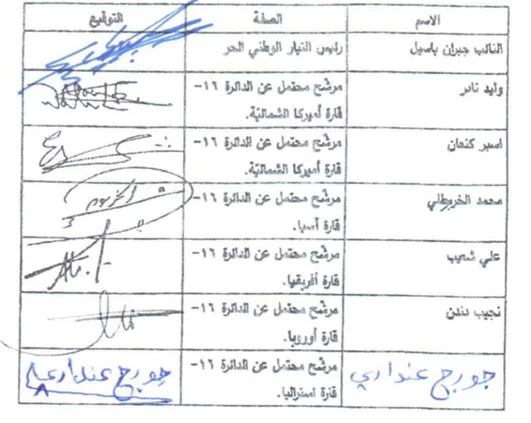 الاسم الصفة التوقيع
النائب جبران باسيل رئيس التيار الوطني الحر
وليد نادر مرشح محتمل عن الدائرة ١٦-
قارة أميركا الشماليّة.
اسبر كنعان مرشح محتمل عن الدائرة ١٦-
قارة أميركا الشماليّة.
محمد الخربطلي مرشح محتمل عن الدائرة ١٦-
قارة آسيا.
علي شعيب مرشح محتمل عن الدائرة ١٦-
قارة أفريقيا.
نجيب دندن مرشح محتمل عن الدائرة ١٦-
قارة أوروبا.
جورج عنداري مرشح محتمل عن الدائرة ١٦- جورج عنداري
قارة استراليا.